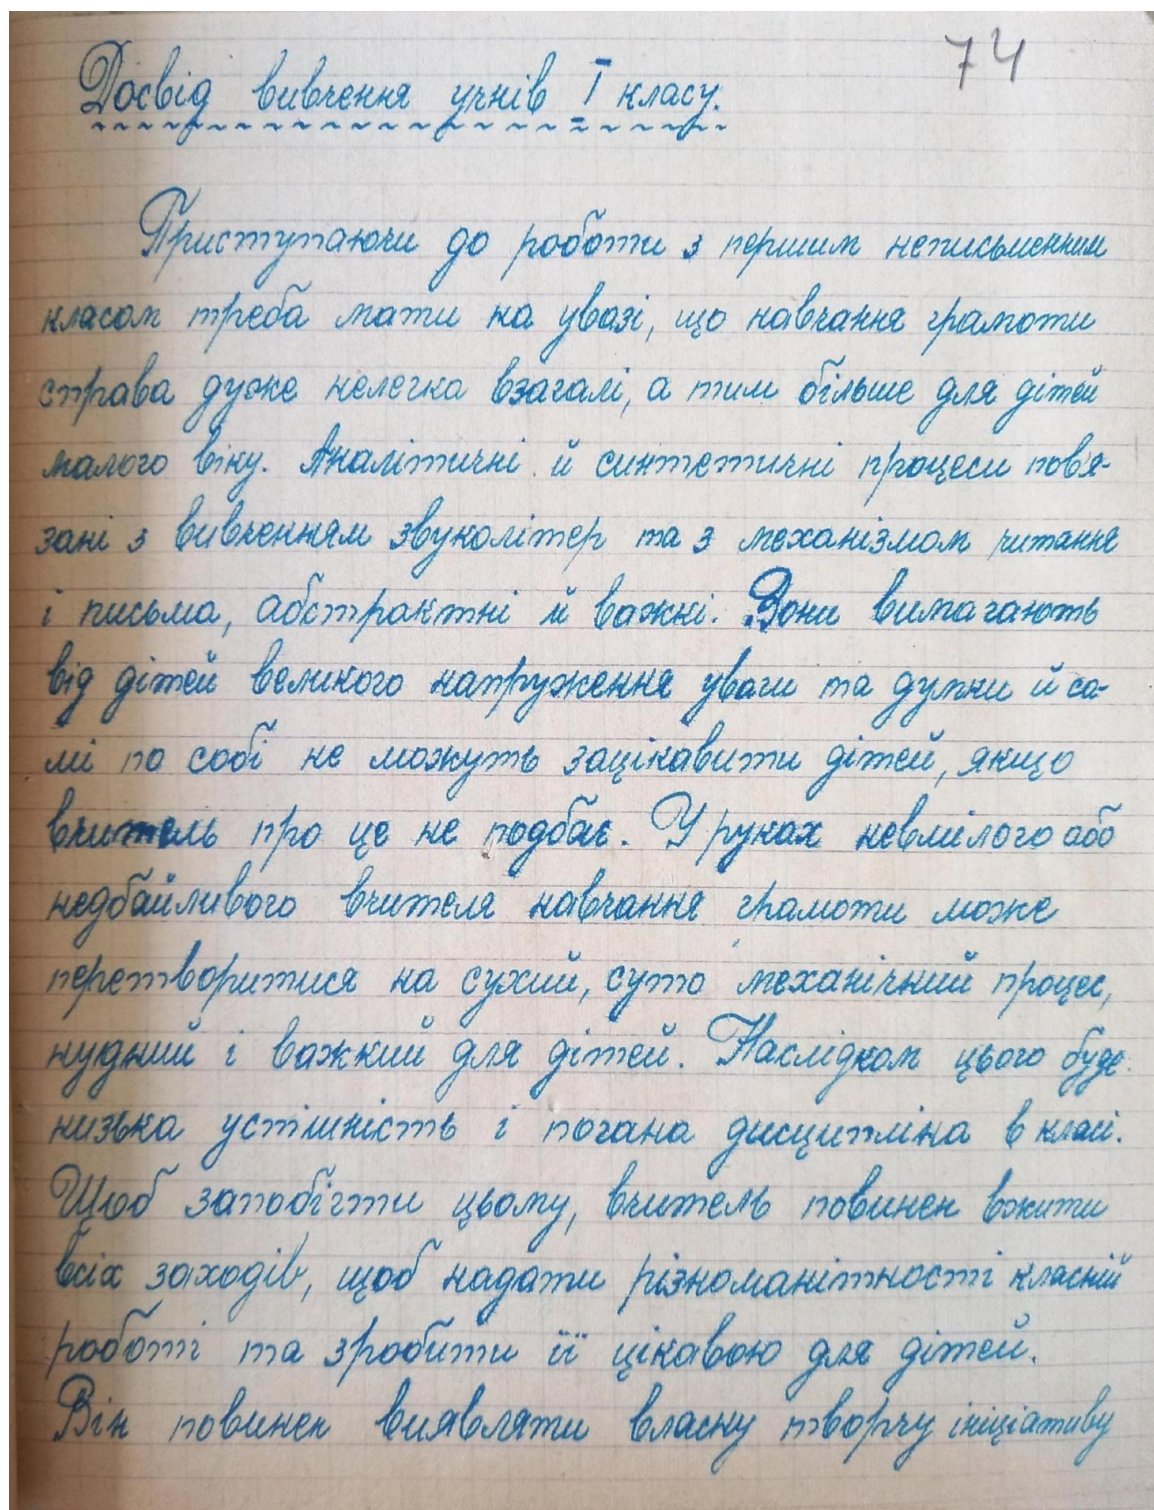 74
Досвід вивчення учнів I класу.
Приступаючи до роботи з першим неписьменним
класом треба мати на увазі, що навчання грамоти
справа дуже нелегка взагалі, а тим більше для дітей
малого віку. Аналітичні й синтетичні процеси пов'я-
зані з вивченням звуколітер та з механізмом читання
і письма, абстрактні й важкі. Вони вимагають
від дітей великого напруження уваги та думки й са-
мі по собі не можуть зацікавити дітей, якщо
вчитель про це не подбає. У руках невмілого або
недбайливого вчителя навчання грамоти може
перетворитися на сухий, суто механічний процес,
нудний і важкий для дітей. Наслідком цього буде
низька успішність і погана дисципліна в класі.
Щоб запобігти цьому, вчитель повинен вжити
всіх заходів, щоб надати різноманітності класній
роботі та зробити її цікавою для дітей.
Він повинен виявляти власну творчу ініціативу